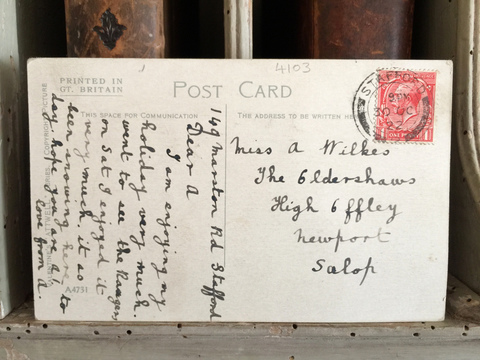 4103
PRINTED IN
GT. BRITAIN
POST CARD
THIS SPACE FOR COMMUNICATION
THE ADDRESS TO BE WRITTEN HERE
STAFFORD
149 Marston Rd Stafford
Dear A
I am enjoying my
holiday very much.
went to see the Rangers
on Sat I enjoyed it
very much. it as
been snowing here to
day hope you are A.1.
love from A.
A4751
Miss A Wilkes
The Oldershaws
High Offley
Newport
Salop